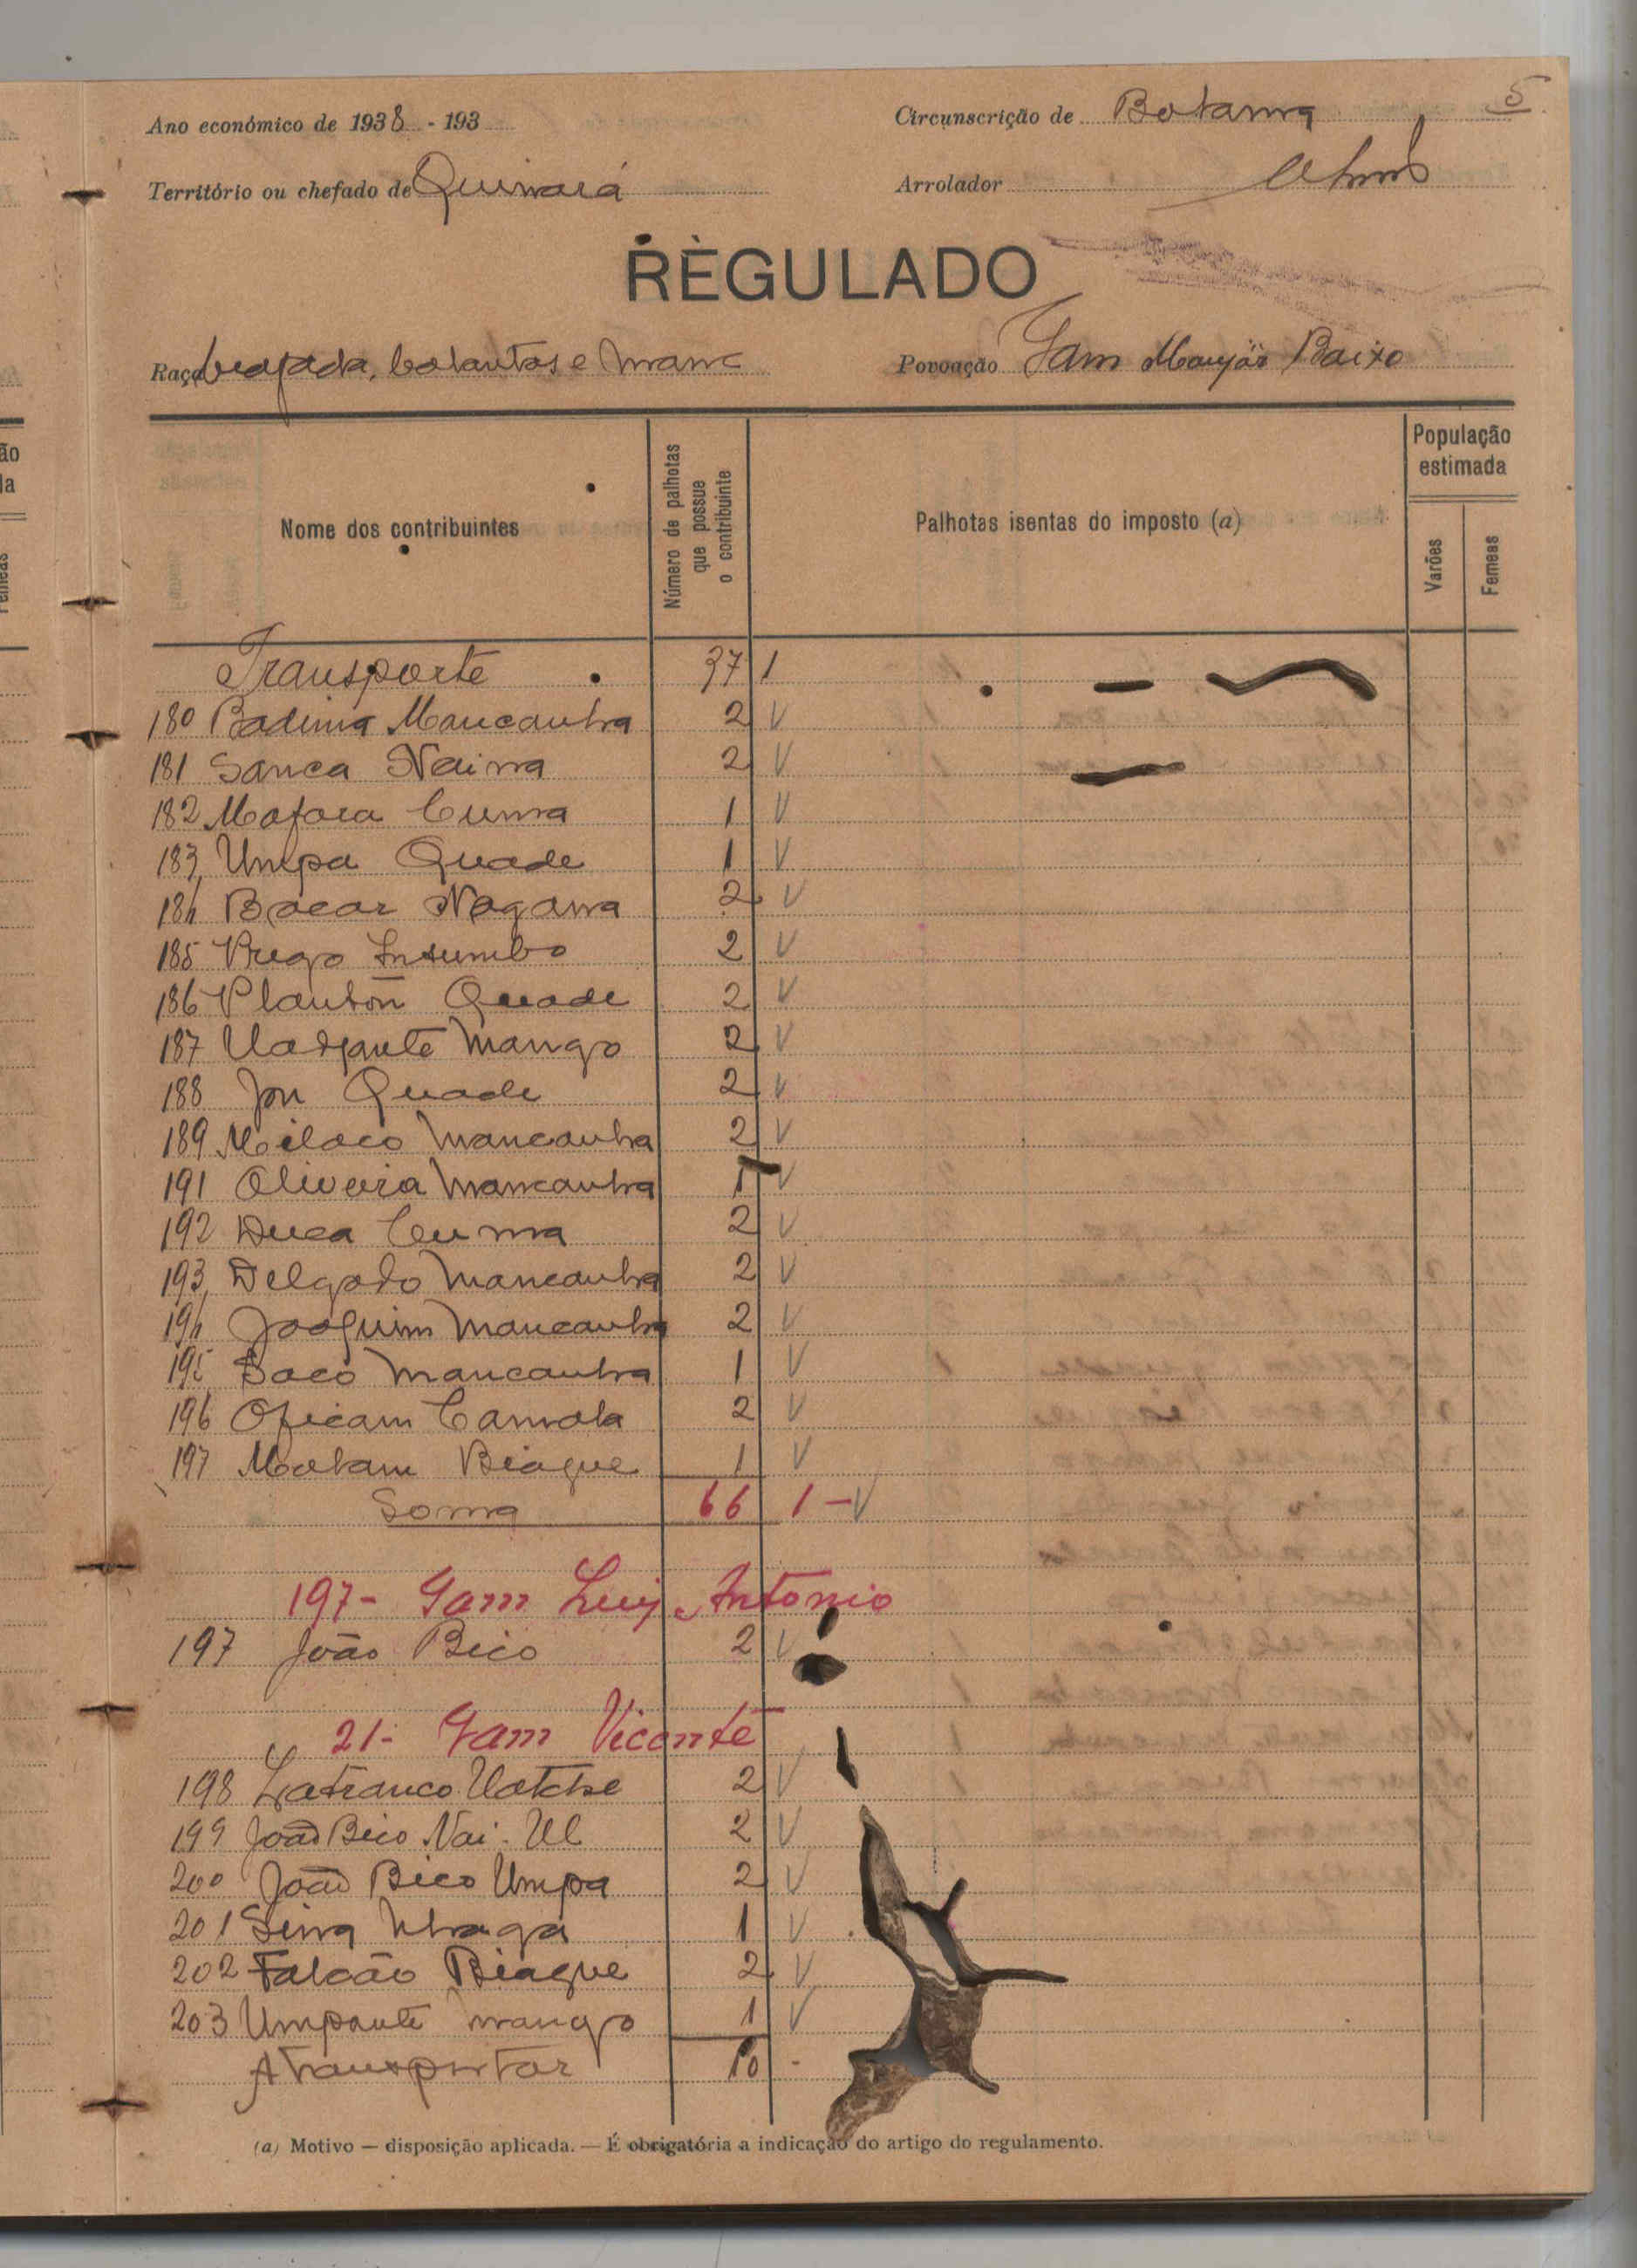 5
Ano económico de 1938 - 193
Circunscrição de Bolama
Território ou chefado de Quinará
Arrolador
REGULADO
Raça beafada, balantas e manc
Povoação Gam Manjór Baixo
Nome dos contribuintes
Número de palhotas que possue o contribuinte
Palhotas isentas do imposto (a)
População estimada
Varões
Femeas
Transporte 37 1
180 Badinia Mancanha 2 V
181 Sanca Naima 2 V
182 Mafara Cuma 1 V
183 Umpa Quade 1 V
184 Bacar Nagana 2 V
185 Prego Insumbo 2 V
186 Planton Quade 2 V
187 Uadjante Mango 2 V
188 Jon Quade 2 V
189 Milaco Mancanha 2 V
191 Oliveira Mancanha 1 V
192 Duca Cuma 2 V
193 Delgado Mancanha 2 V
194 Joaquim Mancanha 2 V
195 Baco Mancanha 1 V
196 Oficam Camala 2 V
197 Malam Biague 1 V
Soma 66 1 - V
197- Gam Luiz Antonio
197 João Bico 2 V
21- Gam Vicente
198 Lafranco Uatche 2 V
199 João Bico Nai. Ul 2 V
200 João Bico Umpa 2 V
201 Sina 1 V
202 Falcão Biague 2 V
203 Umpante mango 1 V
A transportar 10 -
(a) Motivo — disposição aplicada. — É obrigatória a indicação do artigo do regulamento.